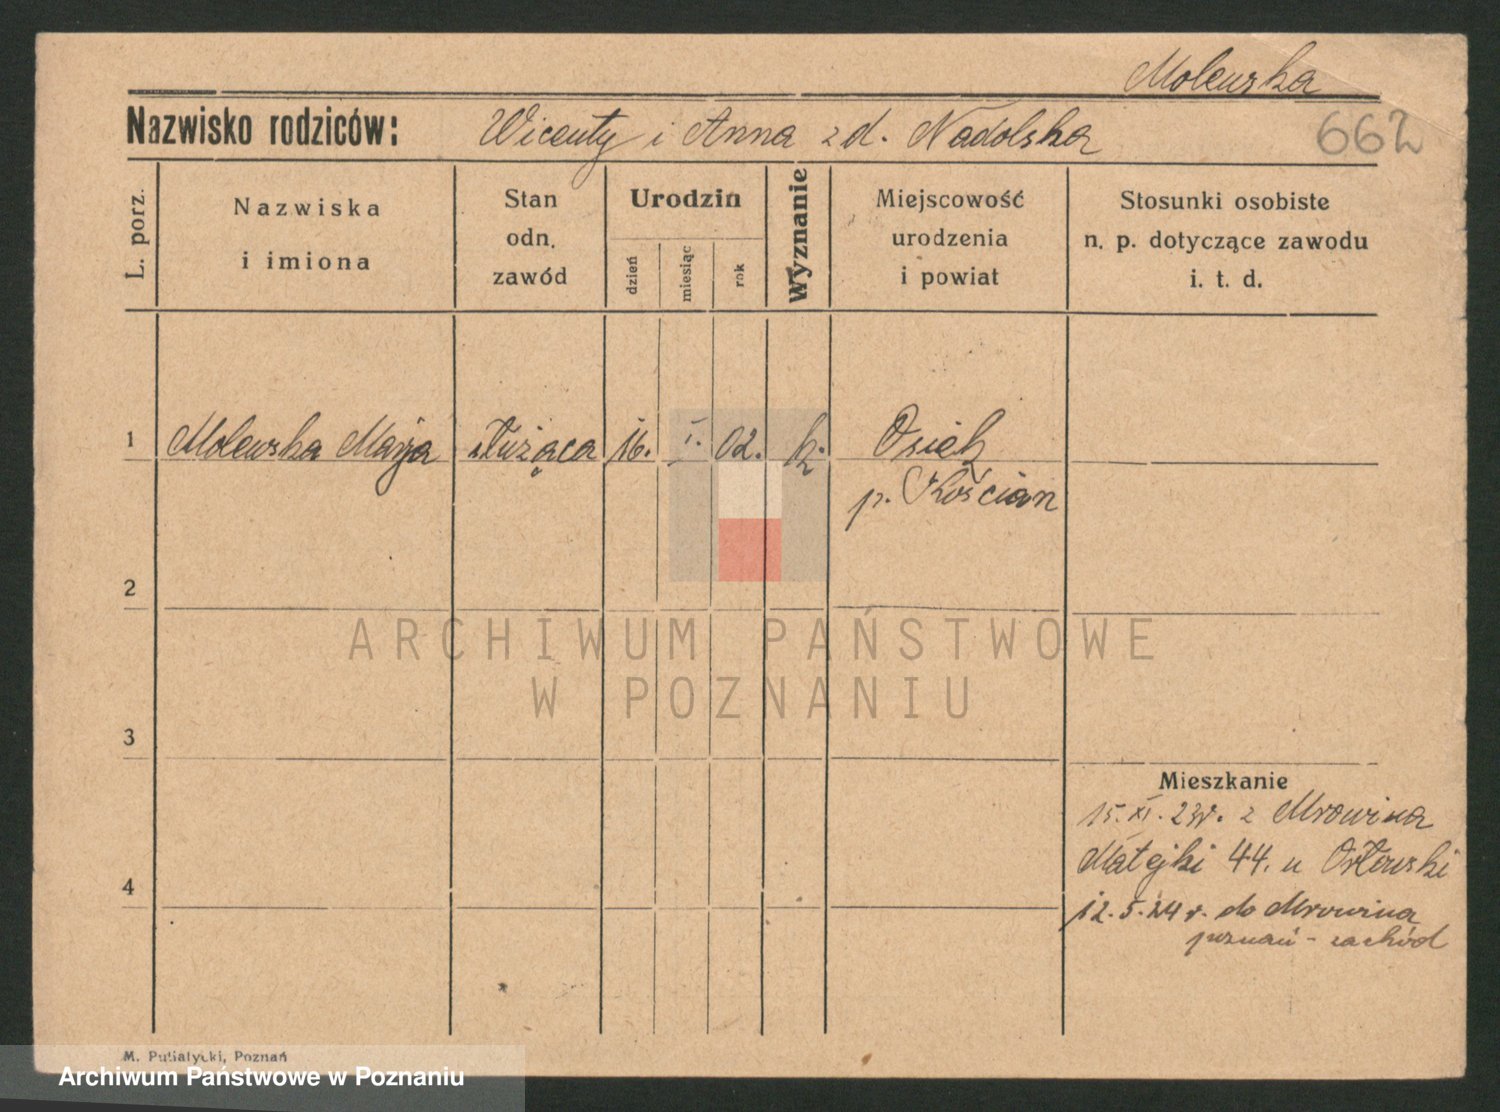 Molewska
Nazwisko rodziców: Wicenty i Anna z d. Nadolska
662
L. porz.
Nazwiska
i imiona
Stan
odn.
zawód
Urodzin
dzień
miesiąc
rok
Wyznanie
Miejscowość
urodzenia
i powiat
Stosunki osobiste
n. p. dotyczące zawodu
i. t. d.
1 Molewska Marja służąca 16. I. 02. k. Osiek
p. Kościan
2
ARCHIWUM PAŃSTWOWE
W POZNANIU
3
Mieszkanie
15. XI. 23r. z Mrowina
Matejki 44. u Orłowski
4
12.5.24 r. do Mrowina
poznań - zachód
M. Putiatycki, Poznań
Archiwum Państwowe w Poznaniu